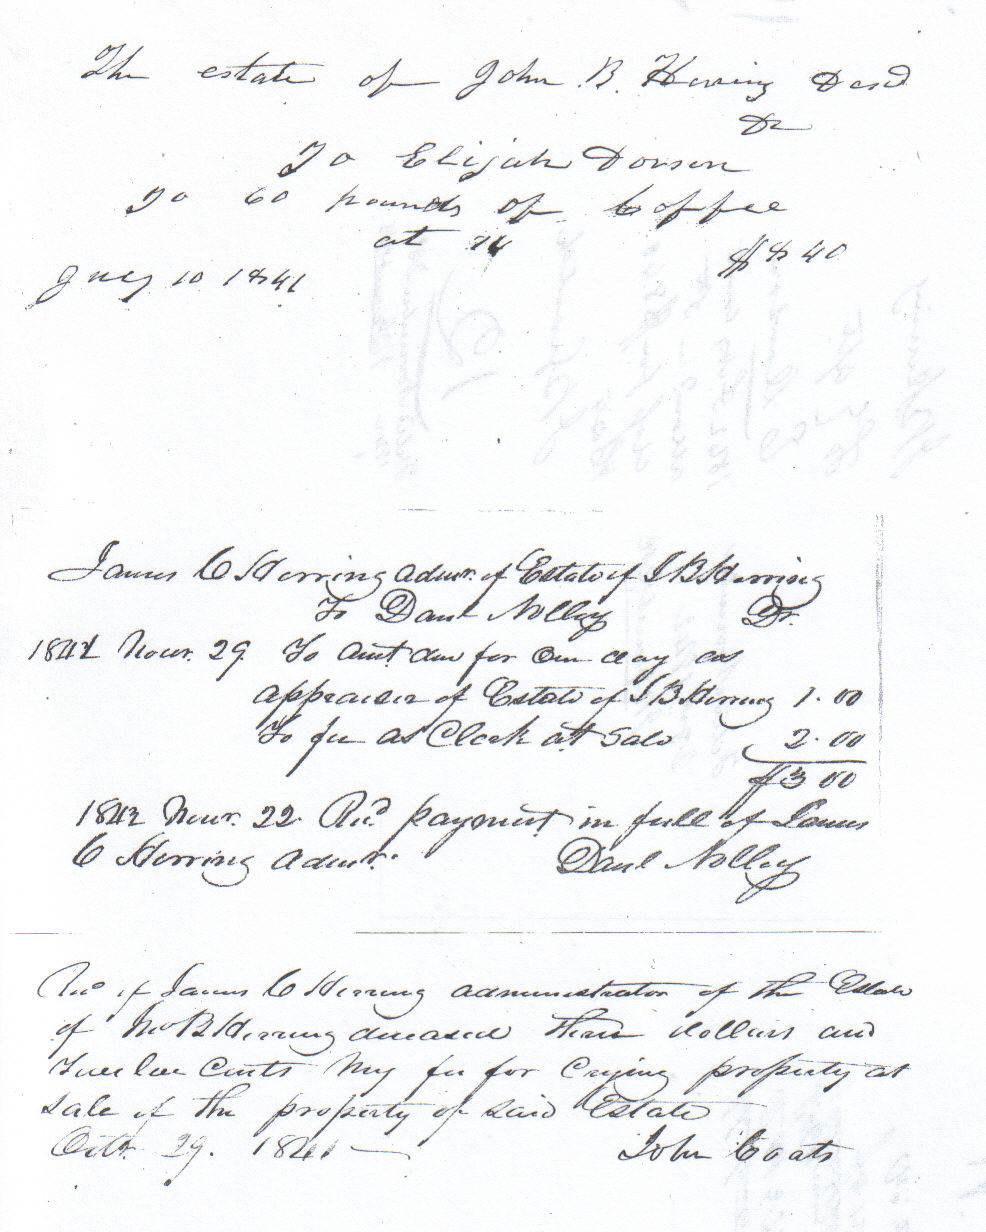 The estate of John B. Herring Decsd
Dr
To Elijah Dorson
To 60 pounds of Coffee
at 14 $8 40
July 10 1841
James C Herring admr. of Estate of J B Herring
To Danl Nolley Dr.
1841 Novr. 29 To amt due for One day as
appraiser of Estate of J B Herring 1.00
To fee as Clerk at Sale 2.00
$3 00
1842 Novr. 22. Recd payment in full of James
C Herring admr. Danl Nolley
Recd of James C Herring administrator of the Estate
of Jno B Herring deceased three dollars and
Twelve Cents my fee for Crying property at
sale of the property of said Estate
Octr. 29. 1841 John Coats